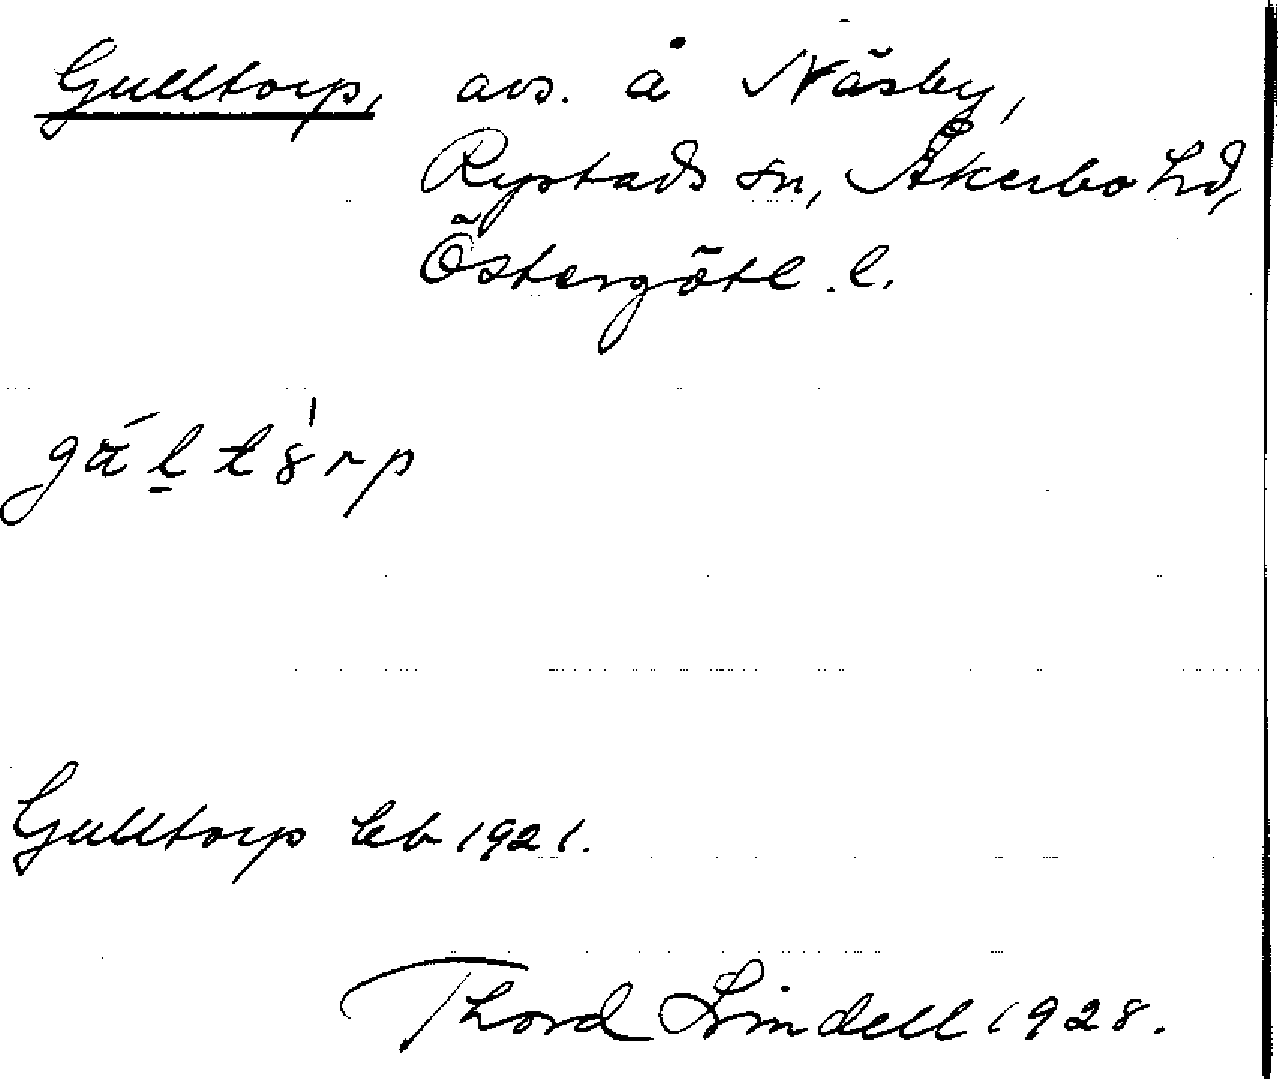 Gulltorp, avs. å Näsby,
Rystads sn, Åkerbo hd,
Östergötl. l.
Gulltorp lb 1921.
Thord Lindell 1928.